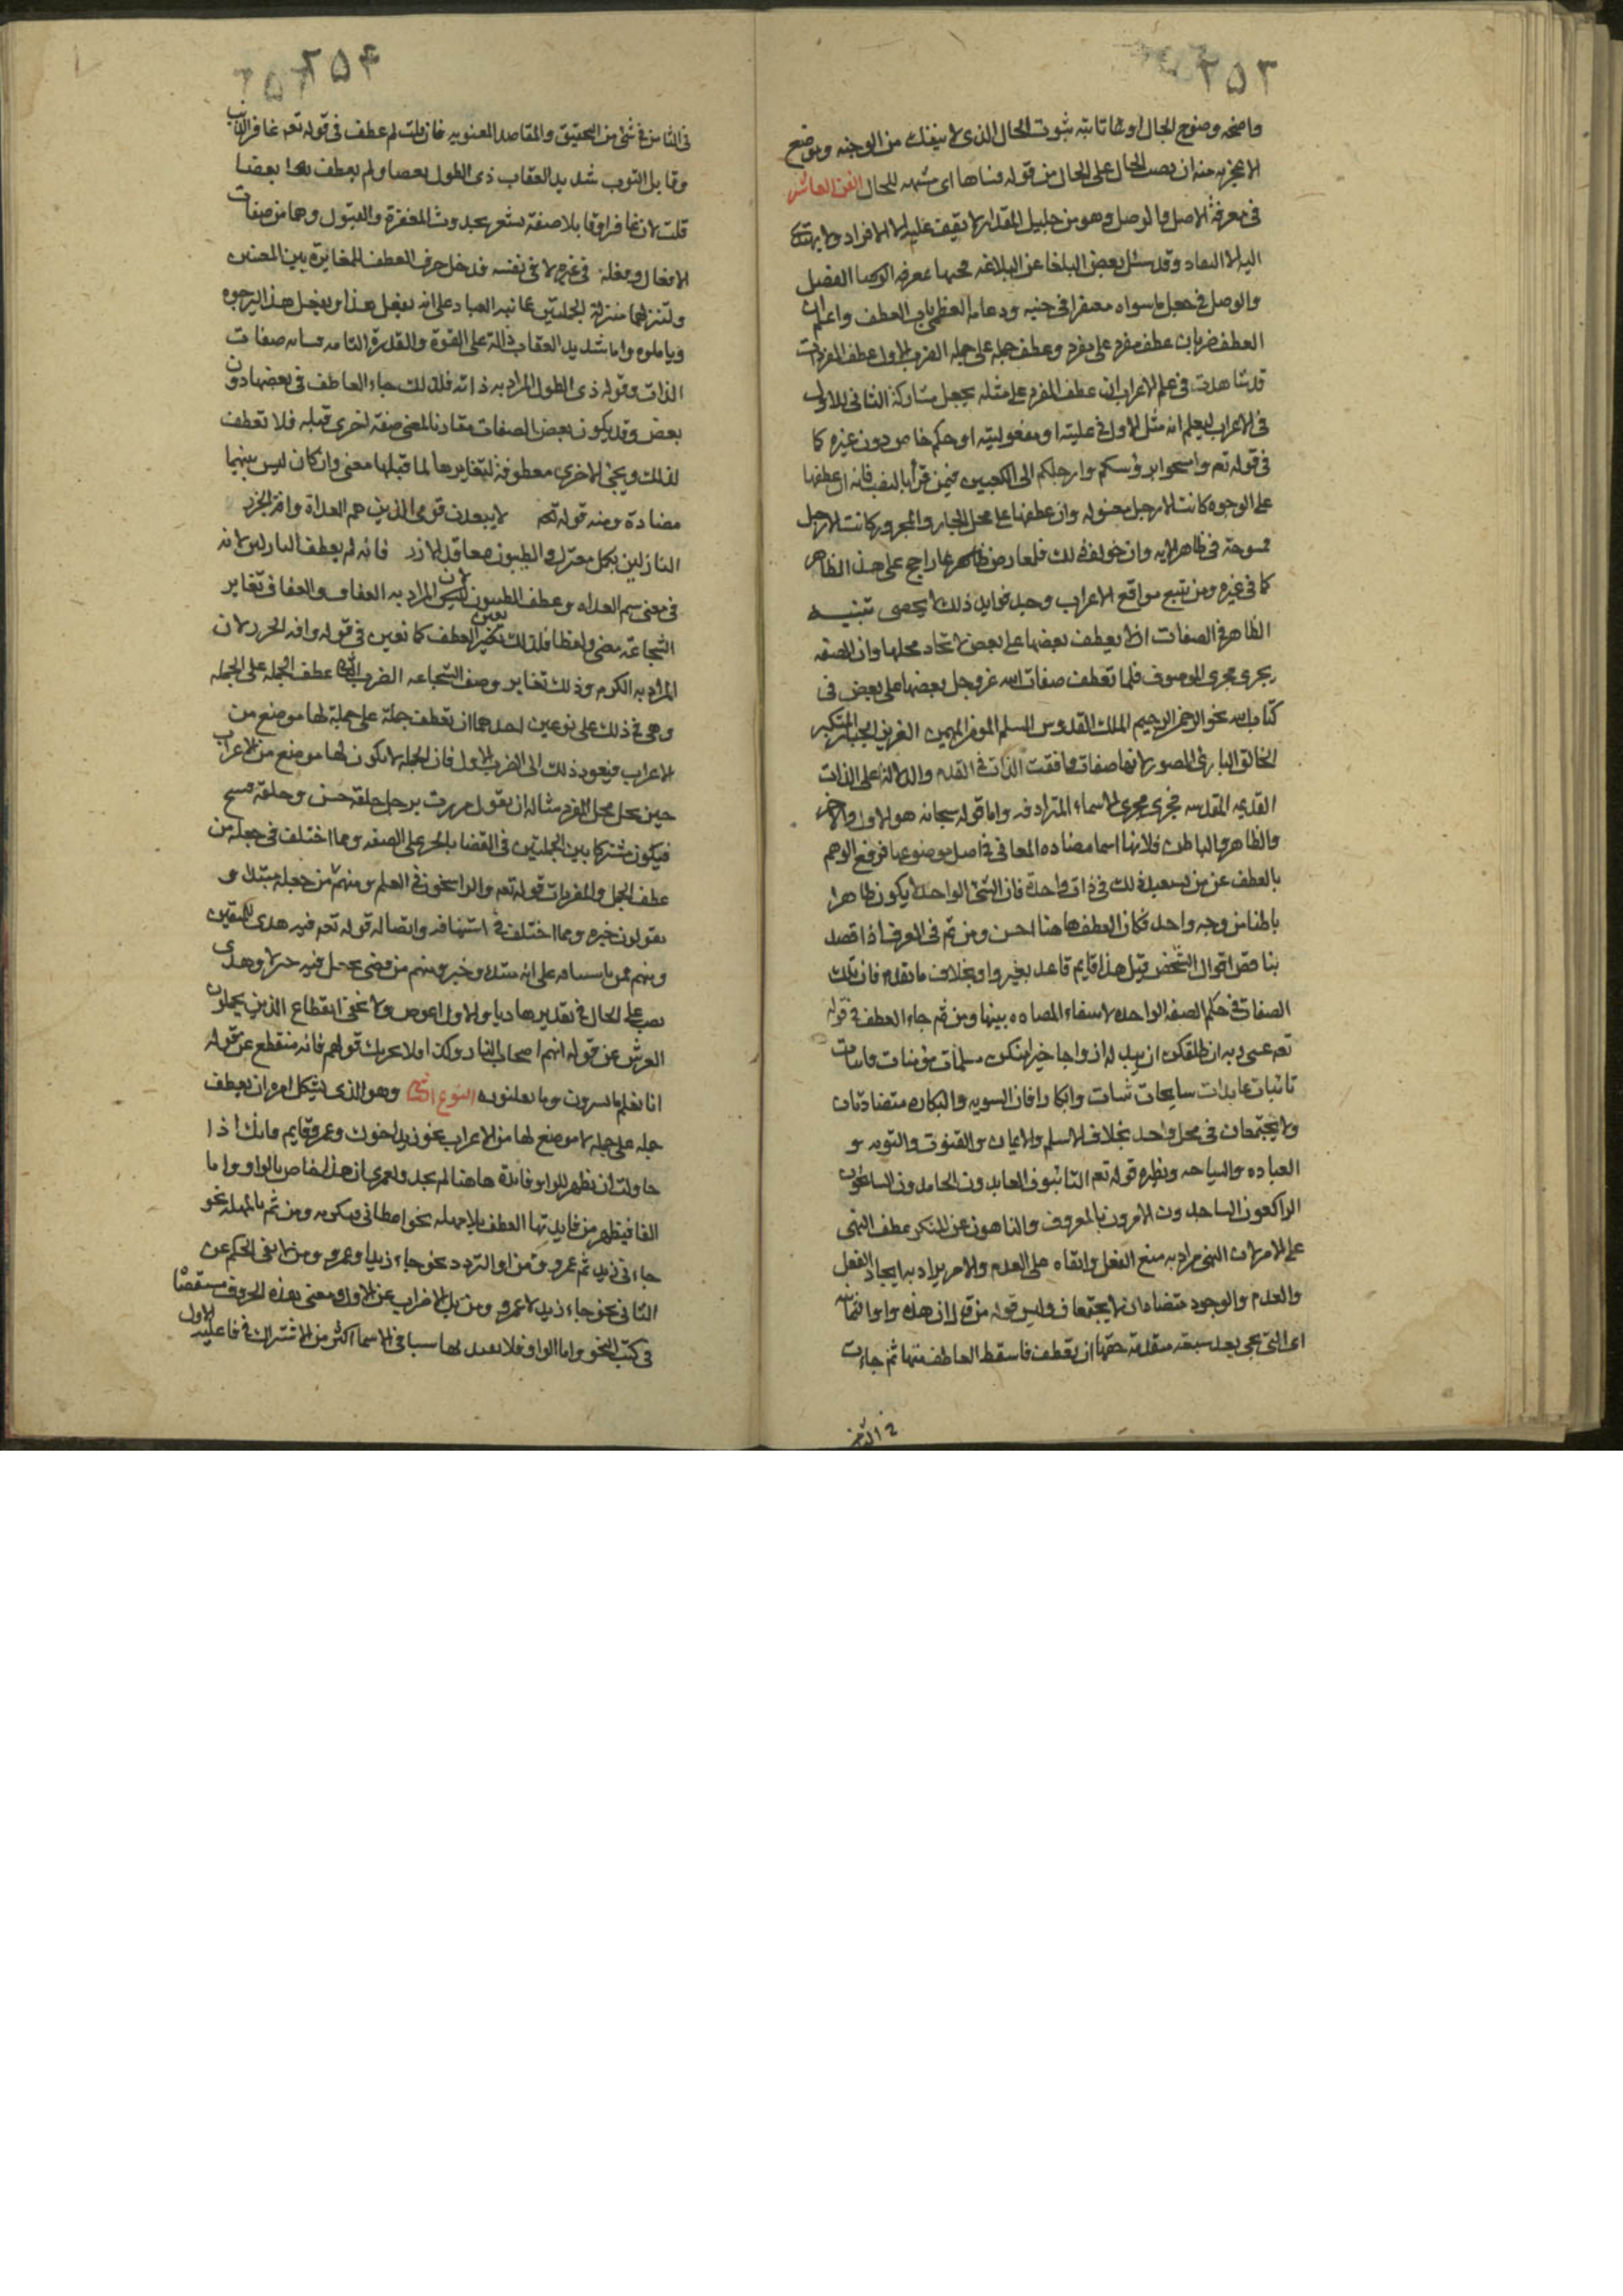 ٢٥٣
واضحه وضوح الجبال او ثابته ثبوت الجبال الذى لا ينفك من الوجنه وموضع
الاعجزيه منه ان يصب الحال على الحال من قوله فشاها اى مشبه للحال الفن العاشر
فى معرفة الاصل والوصل وهو من جليل المقدار لا يقف عليه الا الافراد ولا يهتدى
اليه الا النقاد وقد سئل بعض البلغا عن البلاغه فحدها بمعرفه الفصل
والوصل فجعل ما سواه مفتقرا فى جنبه ودعامه العظمى باب العطف واعلم ان
العطف ضربان عطف مفرد على مفرد وعطف جمله على جمله الضرب الاول عطف المفردات
قد شاهدت فى علم الاعراب ان عطف المفرد على مثله يجعل مشاركة الثانى للاول
فى الاعراب ليعلم انه مثل الاول فى فاعليته او مفعوليته او حكم خاص دون غيره كما
فى قوله تعه وامسحوا برؤسكم وارجلكم الى الكعبين فيمن قرأ بالنصب فانه ان عطفها
على الوجوه كانت الارجل مغسوله وان عطفها على محل الجار والمجرور كانت الارجل
ممسوحة فى ظاهر الايه وان خولف ذلك فلمعارض ظاهر عا راجح على هذا الظاهر
كما فى غيره ومن تتبع مواقع الاعراب وجد فوايد ذلك لا يحصى تنبيه
الظاهر فى الصفات الا يعطف بعضها على بعض لاتحاد محلها وان الصفه
يجرى مجرى الموصوف فلما تعطف صفات الله عز وجل بعضها على بعض فى
كتاب الله نحو الرحمن الرحيم الملك القدوس السلم المؤمن المهيمن العزيز الجبار المتكبر
الخالق البارئ المصور لانها صفات وافقت الذات فى القدم والدلالة على الذات
القديمه المقدسه فجرى مجرى الاسماء المترادفه واما قوله سبحانه هو الاول والاخر
والظاهر والباطن فلانها اسما مضاده المعانى فى اصل موضوعها فرفع الوهم
بالعطف عن من يستبعد ذلك فى ذات واحدة فان الشئ الواحد لا يكون ظاهرا
باطنا من وجه واحد فكان العطف هاهنا احسن ومن ثم فى العرف اذا قصد
تناقض احوال الشخص قيل هذا قايم قاعد بغير واو بخلاف ما تقدم فان تلك
الصفات فى حكم الصفه الواحده لانتفاء المضاده بينها ومن ثم جاء العطف فى قوله
تعه عسى ربه ان طلقكن ان يبدله ازواجا خيرا منكن مسلمات مؤمنات قانتات
تائبات عابدات سايحات ثيبات وابكارا فان الثيوبه والبكاره متضادتان
ولا يجتمعان فى محل واحد بخلاف الاسلم والايمان والقنوت والتوبه و
العباده والسياحه ونظيره قوله تعه التائبون العابدون الحامدون السايحون
الراكعون الساجدون الامرون بالمعروف والناهون عن المنكر عطف النهى
على الامر لان النهى مراد به منع الفعل وابقاه على العدم والامر يراد به ايجاد الفعل
والعدم والوجود متضادان لا يجتمعان وليس قوله من قال ان هذه واو الثمانيه
اى التى تجى بعد سبعه متقدمة حقها ان تعطف فاسقط العاطف منها ثم جاءت
فى الثامن
٢٥۴
فى الثامن فى شئ من التحقيق والمقاصد المعنويه فان قلت لم عطف فى قوله تعه غافر الذنب
وقابل التوب شديد العقاب ذى الطول بعضا ولم يعطف بعضا
قلت لان غافرا وقابلا صفة تشعر بحدوث المغفرة والقبول وهما من صفات
الافعال وفعله فى غيره لا فى نفسه فدخل حرف العطف للمغايرة بين المعنيين
ولتنزلهما منزلة الجملتين تنبيه العباد على انه يفعل هذا ويفعل هذا ليرجوه
وياملوه واما شديد العقاب دالة على القوة والقدرة التامه صفات
الذات وقوله ذى الطول المراد به ذاته فلذلك جاء العاطف فى بعضها دون
بعض وقد يكون بعض الصفات مقارنا لمعنى صفة اخرى قبله فلا تعطف
لذلك ويجئ الاخرى معطوفة لتغايرها لما قبلها معنى وان كان ليس بينهما
مضادة ومنه قوله لا يبعدن قومى الذين هم العداة وافة الجزر
النازلين بكل معترك والطيبون معاقد الازر فانه لم يعطف النازلين لانه
فى معنى سم العداه وعطف الطيبون لان المراد به العفاف والعفاف تغاير
الشجاعه معنى ولفظا فلذلك تعين العطف كما تعين فى قوله وافه الجزر لان
المراد به الكرم وذلك تغاير وصف الشجاعه الضرب الثانى عطف الجمله على الجمله
وهى فى ذلك على نوعين احدهما ان تعطف جملة على جملة لها موضع من
الاعراب فيعود ذلك الى الضرب الاول فان الجمله لا يكون لها موضع من الاعراب
حين يحل محل المفرد مثاله ان يقول مررت برجل خلقه حسن وخلقه قبيح
فيكون مشتركا بين الجملتين فى القضا بالجر على الصفه ومما اختلف فى جعله من
عطف الجمل والمفردات قوله تعه والراسخون فى العلم ومنهم من جعله مبتدا و
يقولون خبره ومما اختلف فى استينافه واتصاله قوله تعه فيه هدى للمتقين
ومنهم من على انه مبتدا وخبر ومنهم من قضى بجعل فيه خبر لا وهدى
نصب على الحال فى تقدير هاديا والاول اعوص ولا يخفى انقطاع الذين يحملون
العرش عن قوله انهم اصحاب النار وكذا ولا يحزنك قولهم فانه منقطع عن قوله
انا نعلم ما يسرون وما يعلنون النوع الثانى وهو الذى يشكل امره ان يعطف
جمله على جمله لا موضع لها من الاعراب نحو زيد اخوك وعمرو قايم فانك اذا
حاولت ان تظهر للواو فائدة هاهنا لم يجد ولعمرى ان هذا لخاص بالواو واما
الفا فيظهر من فايدتها العطف بلا مهله نحو اعطانى فشكرته ومن ثم بالمهله نحو
جاءنى زيد ثم عمرو ومن او التردد نحو جاء زيد او عمرو ومن لا نفى الحكم عن
الثانى نحو جاء زيد لا عمرو ومن بل الاضراب عن الاول ومعنى هذه الحروف مستقصا
فى كتب النحو واما الواو فلا يفيد لها سببا فى الاسما اكثر من الاشتراك فى فاعليه الاول